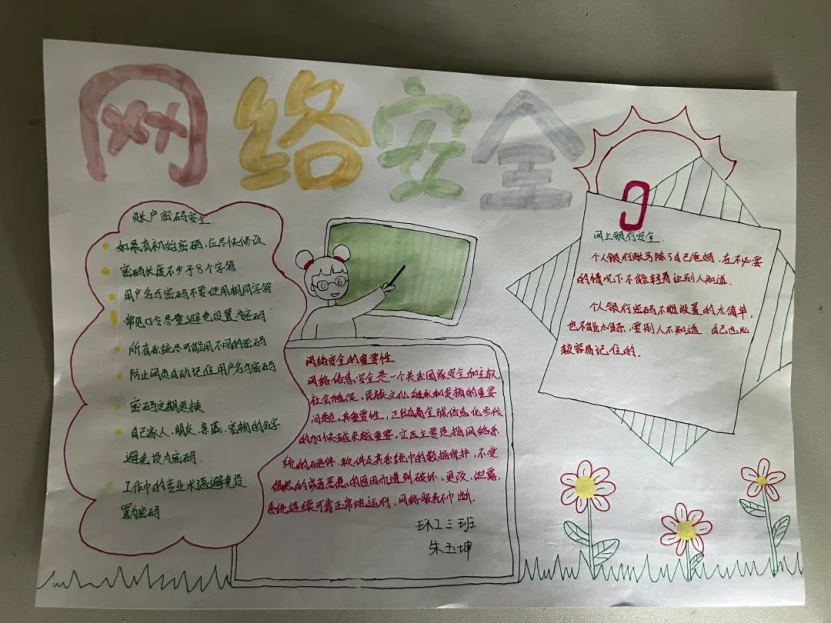 网络安全
账户密码安全
如果有初始密码,应尽快修改
密码长度不少于8个字符
用户名与密码不要使用相同字符
常见口令尽量避免设置为密码
所有系统尽可能用不同的密码
防止网页自动记住用户名与密码
密码定期更换
自己家人、朋友、亲属、宠物的名字
避免设为密码
工作中的专业术语避免设
置为密码
网络安全的重要性
网络信息安全是一个关系国家安全和主权
社会稳定、民族文化继承和发扬的重要
问题,其重要性,正随着全球信息化步伐
的加快越来越重要,它主要是指网络系
统的硬件、软件及其系统中的数据保护,不受
偶然的或者恶意的原因而遭到破坏、更改、泄露,
系统连续可靠正常地运行,网络服务不中断。
环工三班
朱玉坤
网上银行安全
个人银行账号除了自己爸妈,在不必要
的情况下不能轻易让别人知道.
个人银行密码不能设置的太简单,
也不能太复杂,要别人不知道 自己也比
较容易记住的.